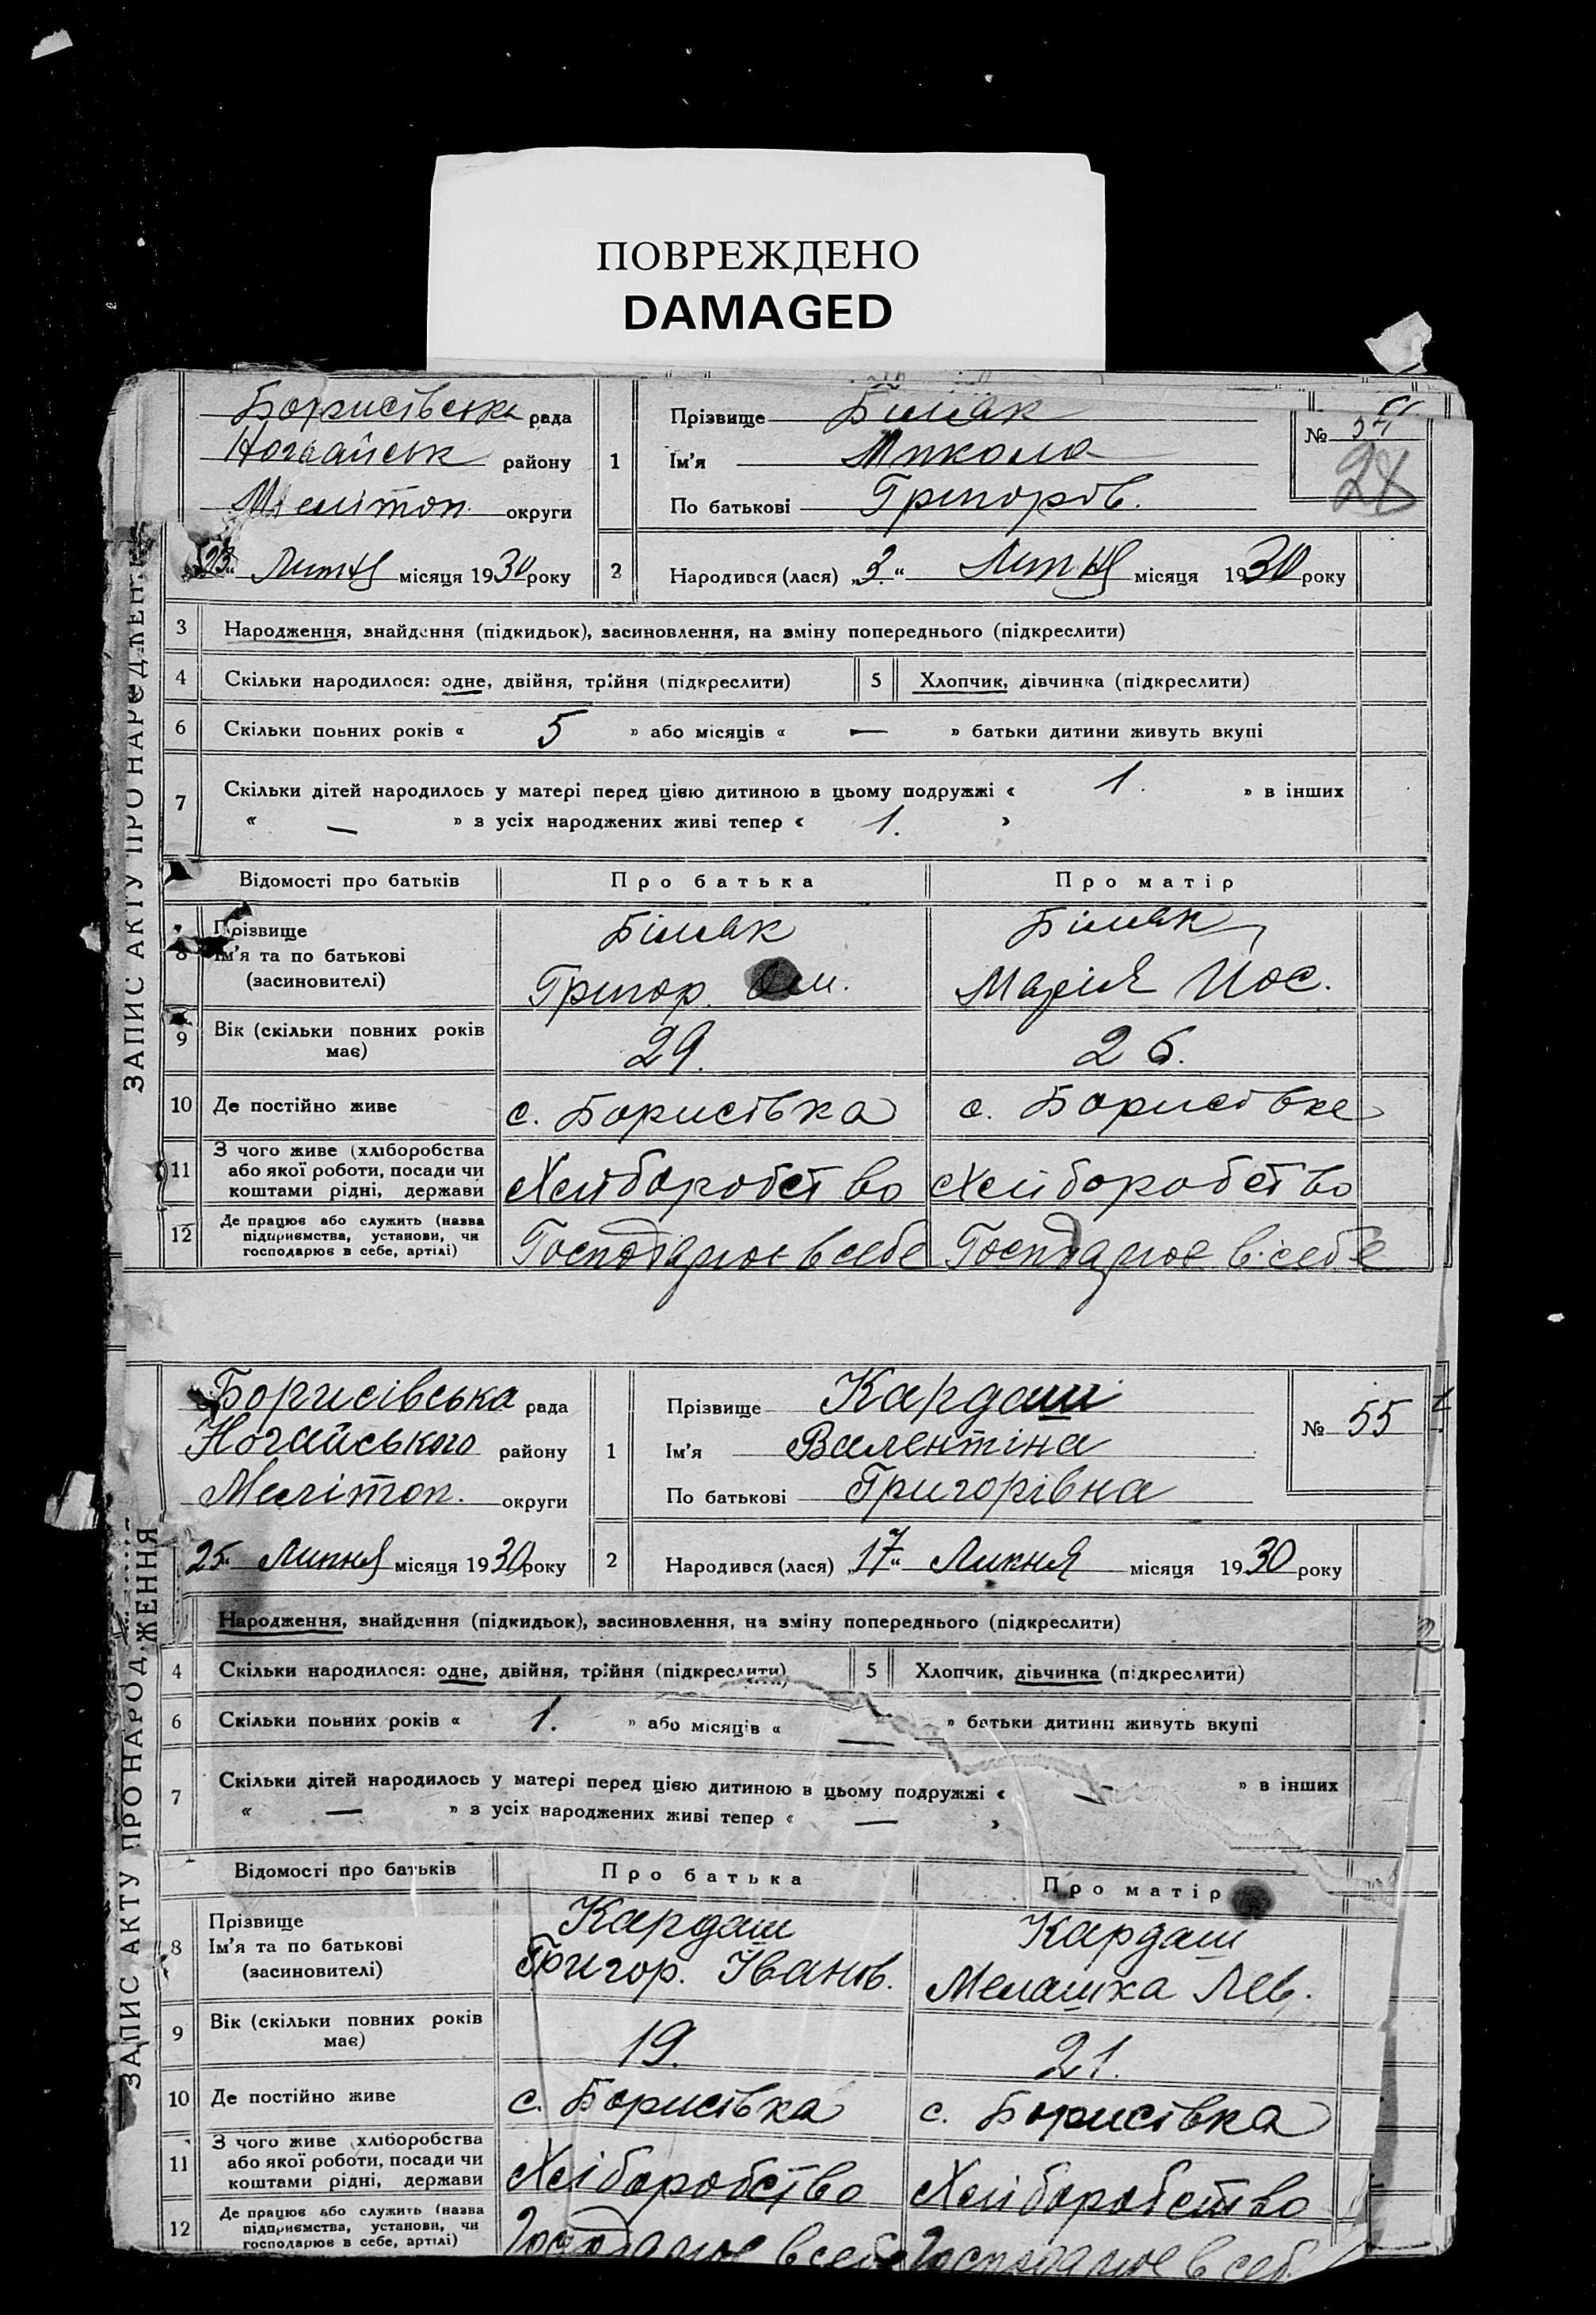 ПОВРЕЖДЕНО
DAMAGED
ЗАПИС АКТУ ПРО НАРОДЖЕН
Борисівська рада
Ногайськ району
Мелітоп. округи
„23“ Липня місяця 1930 року
1
Прізвище Білак
Ім'я Микола
По батькові Григоров.
№ 54
28
2
Народився (лася) „3.“ Липня місяця 1930 року
3 Народження, знайдення (підкидьок), засиновлення, на зміну попереднього (підкреслити)
4 Скільки народилося: одне, двійня, трійня (підкреслити) 5 Хлопчик, дівчинка (підкреслити)
6 Скільки повних років « 5 » або місяців « — » батьки дитини живуть вкупі
7 Скільки дітей народилось у матері перед цією дитиною в цьому подружжі « 1. » в інших
« — » з усіх народжених живі тепер « 1. »
Відомості про батьків Про батька Про матір
8 Прізвище
Ім'я та по батькові
(засновителі)
Білак
Григор.
Білак
Марія Йос.
9 Вік (скільки повних років
має)
29. 26.
10 Де постійно живе с. Борисівка с. Борисівка
11 З чого живе (хліборобства
або якої роботи, посади чи
коштами рідні, держави
Хліборобство Хліборобство
12 Де працює або служить (назва
підприємства, установи, чи
господарює в себе, артілі)
Господарює в себе Господарює в себе
ЗАПИС АКТУ ПРО НАРОДЖЕННЯ
Борисівська рада
Ногайського району
Мелітоп. округи
25“ Липня місяця 1930 року
1
Прізвище Кардаш
Ім'я Валентіна
По батькові Григорівна
№ 55
2
Народився (лася) „17“ Липня місяця 1930 року
Народження, знайдення (підкидьок), засиновлення, на зміну попереднього (підкреслити)
4 Скільки народилося: одне, двійня, трійня (підкреслити) 5 Хлопчик, дівчинка (підкреслити)
6 Скільки повних років « 1. » або місяців « — » батьки дитини живуть вкупі
7 Скільки дітей народилось у матері перед цією дитиною в цьому подружжі « — » в інших
« — » з усіх народжених живі тепер « — »
Відомості про батьків Про батька Про матір
8 Прізвище
Ім'я та по батькові
(засиновителі)
Кардаш
Григор. Іванов.
Кардаш
Мелашка Лев.
9 Вік (скільки повних років
має)
19. 21.
10 Де постійно живе с. Борисівка с. Борисівка
11 З чого живе хліборобства
або якої роботи, посади чи
коштами рідні, держави
Хліборобство Хліборобство
12 Де працює або служить (назва
підприємства, установи, чи
господарює в себе, артілі)
Господарює в себе Господарює в себ